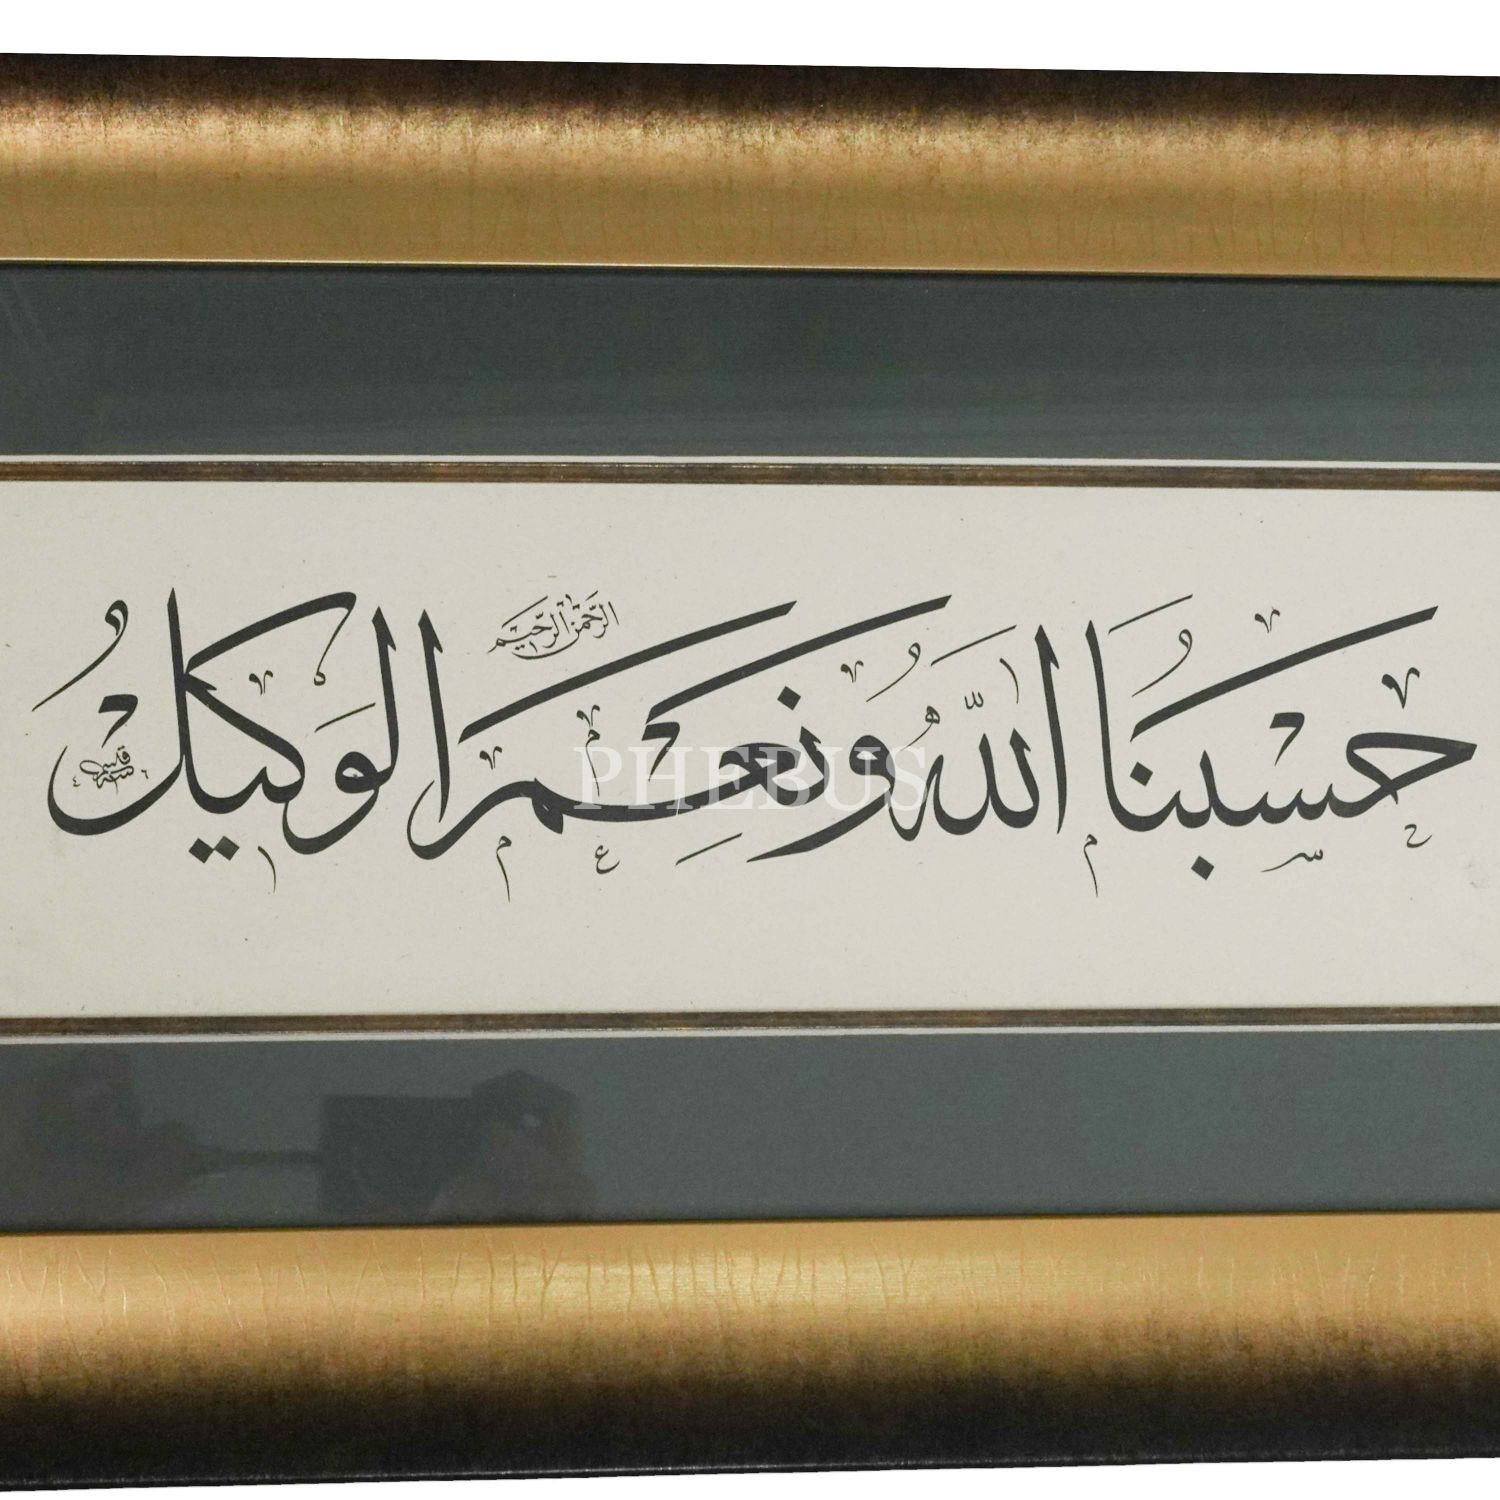 حسبنا الله ونعم الوكيل
الرحمن الرحيم
PHEBUS